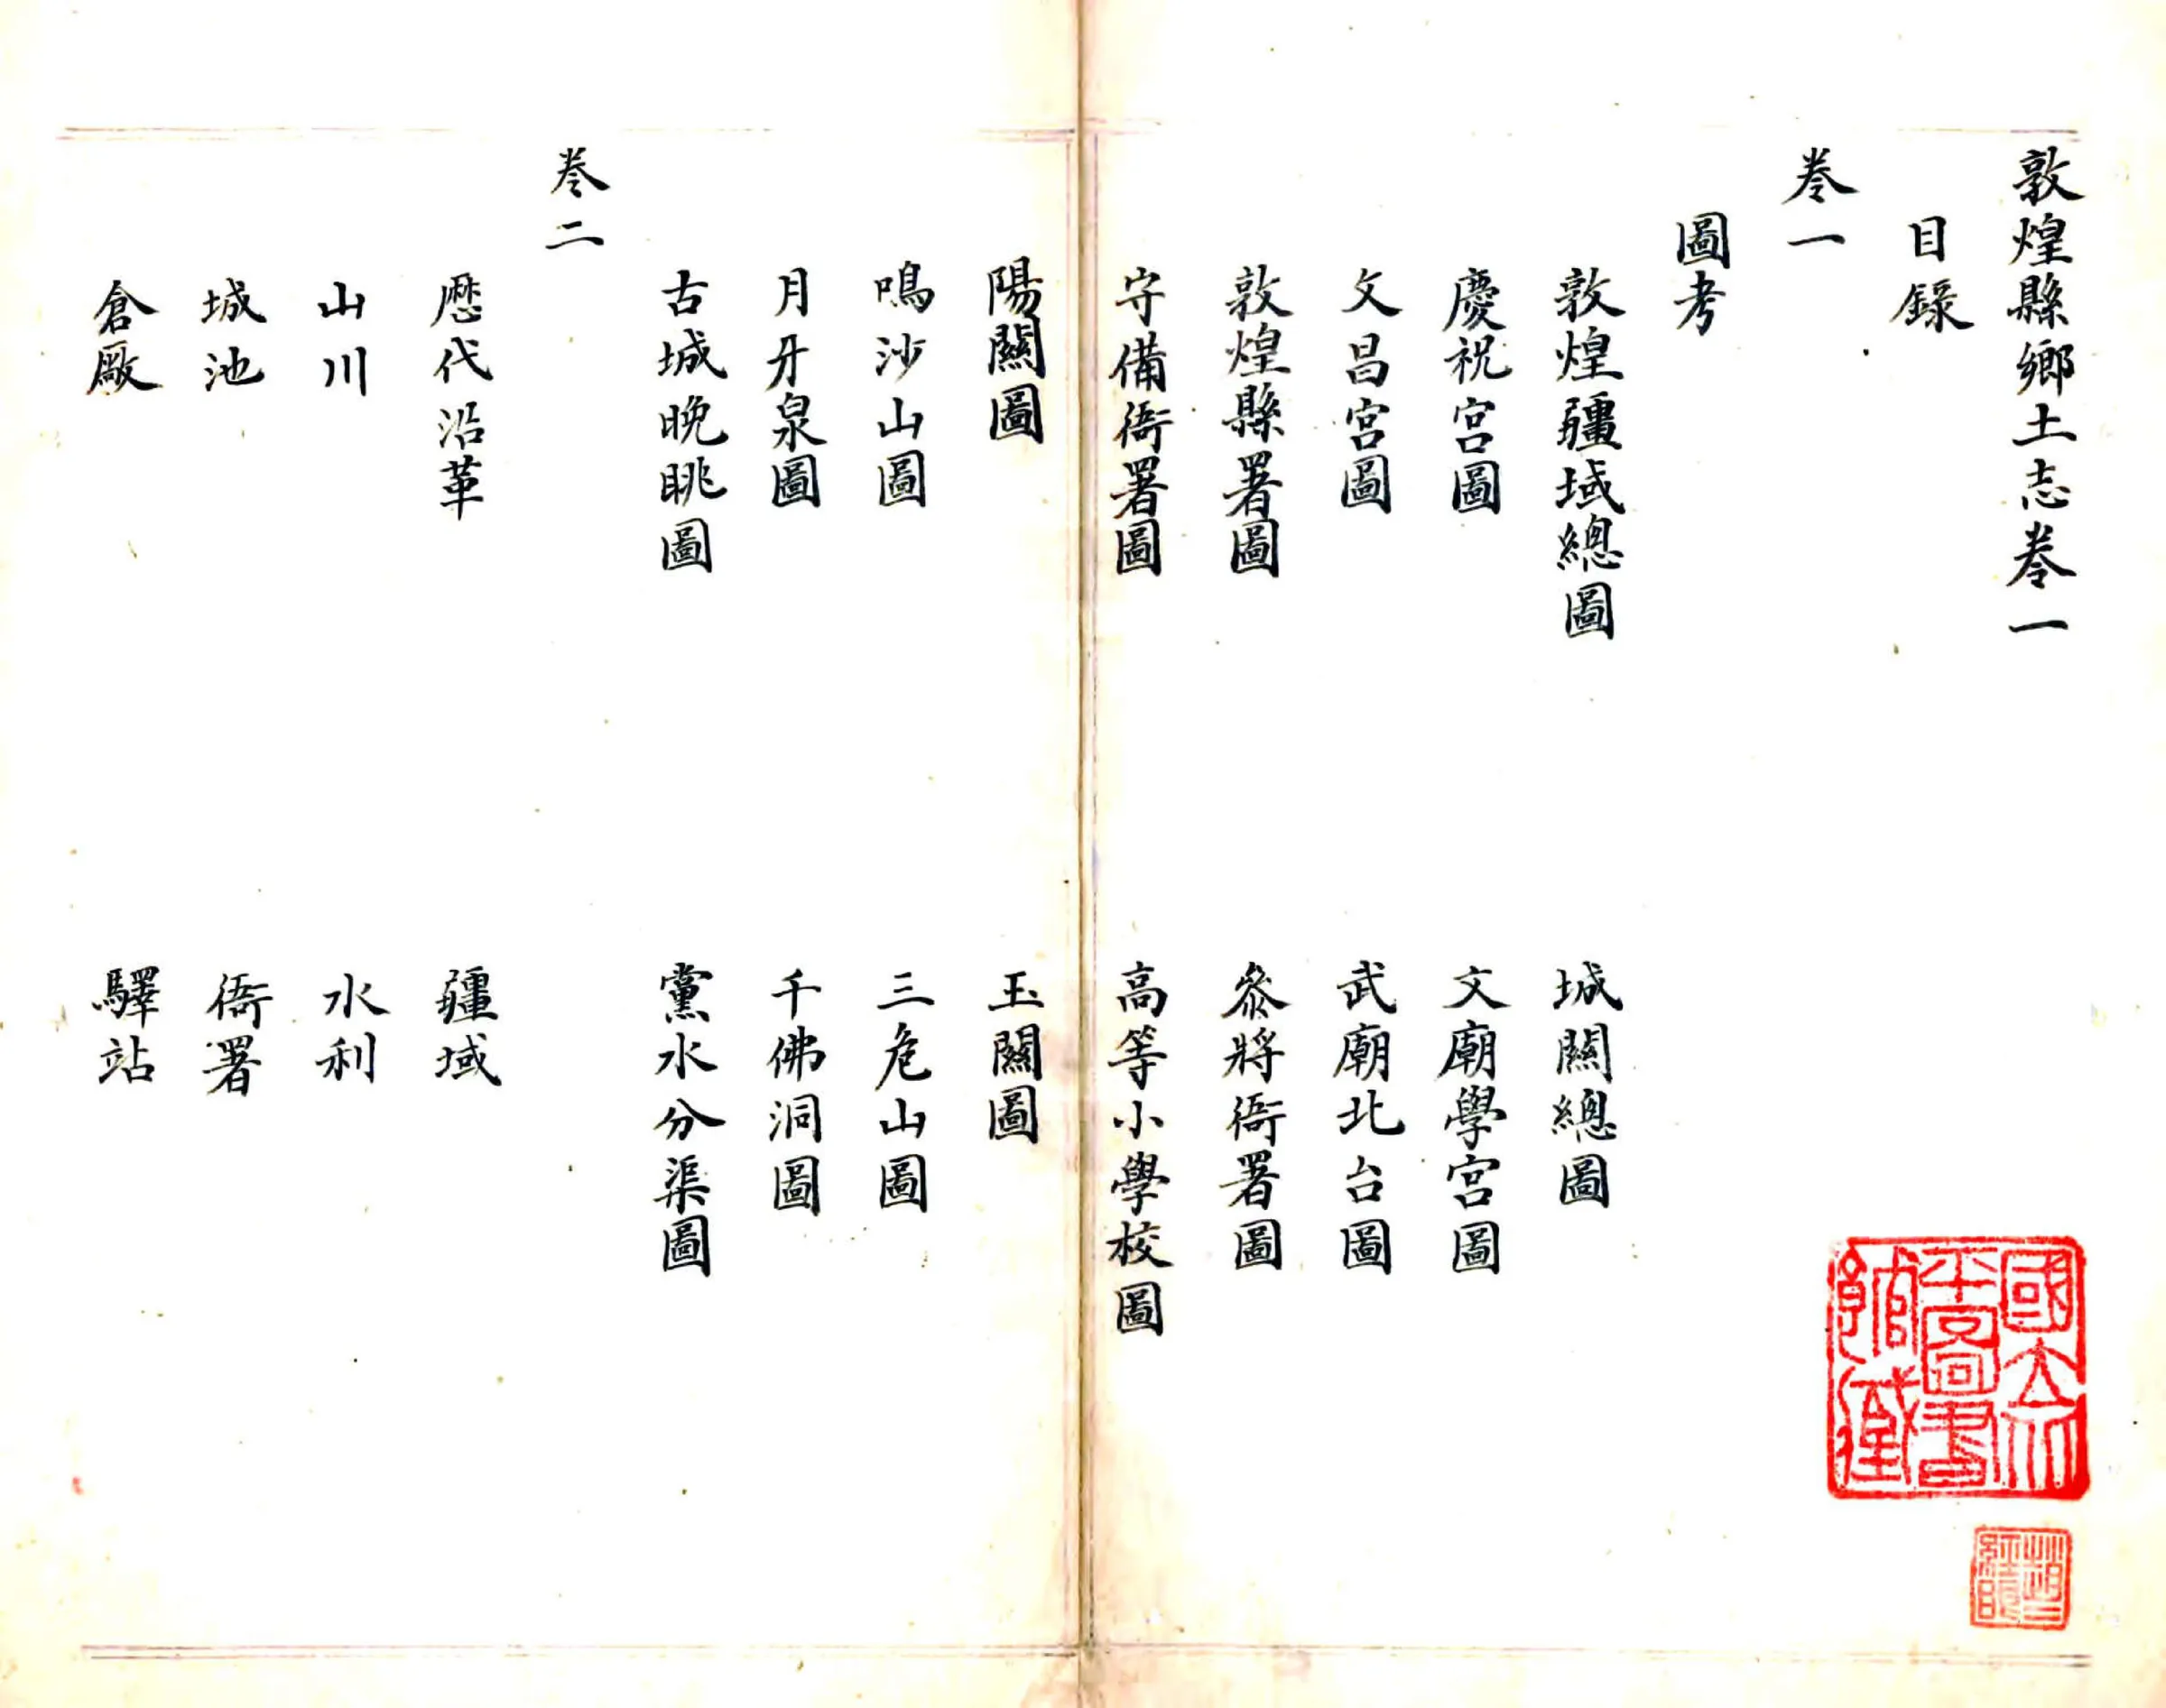 敦煌縣鄉土志卷一
目録
卷一
圖考
敦煌疆域總圖 城關總圖
慶祝宮圖 文廟學宮圖
文昌宮圖 武廟北台圖
敦煌縣署圖 叅將衙署圖
守備衙署圖 高等小學校圖
陽關圖 玉關圖
鳴沙山圖 三危山圖
月牙泉圖 千佛洞圖
古城晚眺圖 黨水分渠圖
卷二
歷代沿革 疆域
山川 水利
城池 衙署
倉厫 驛站
國立北
平圖書
館藏